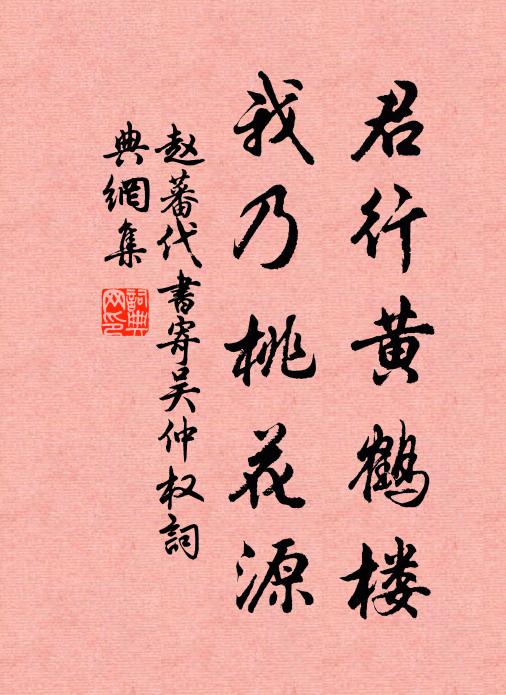 君行黄鹤楼
我乃桃花源
赵蕃代书寄吴仲权词
典網集
詞典网印